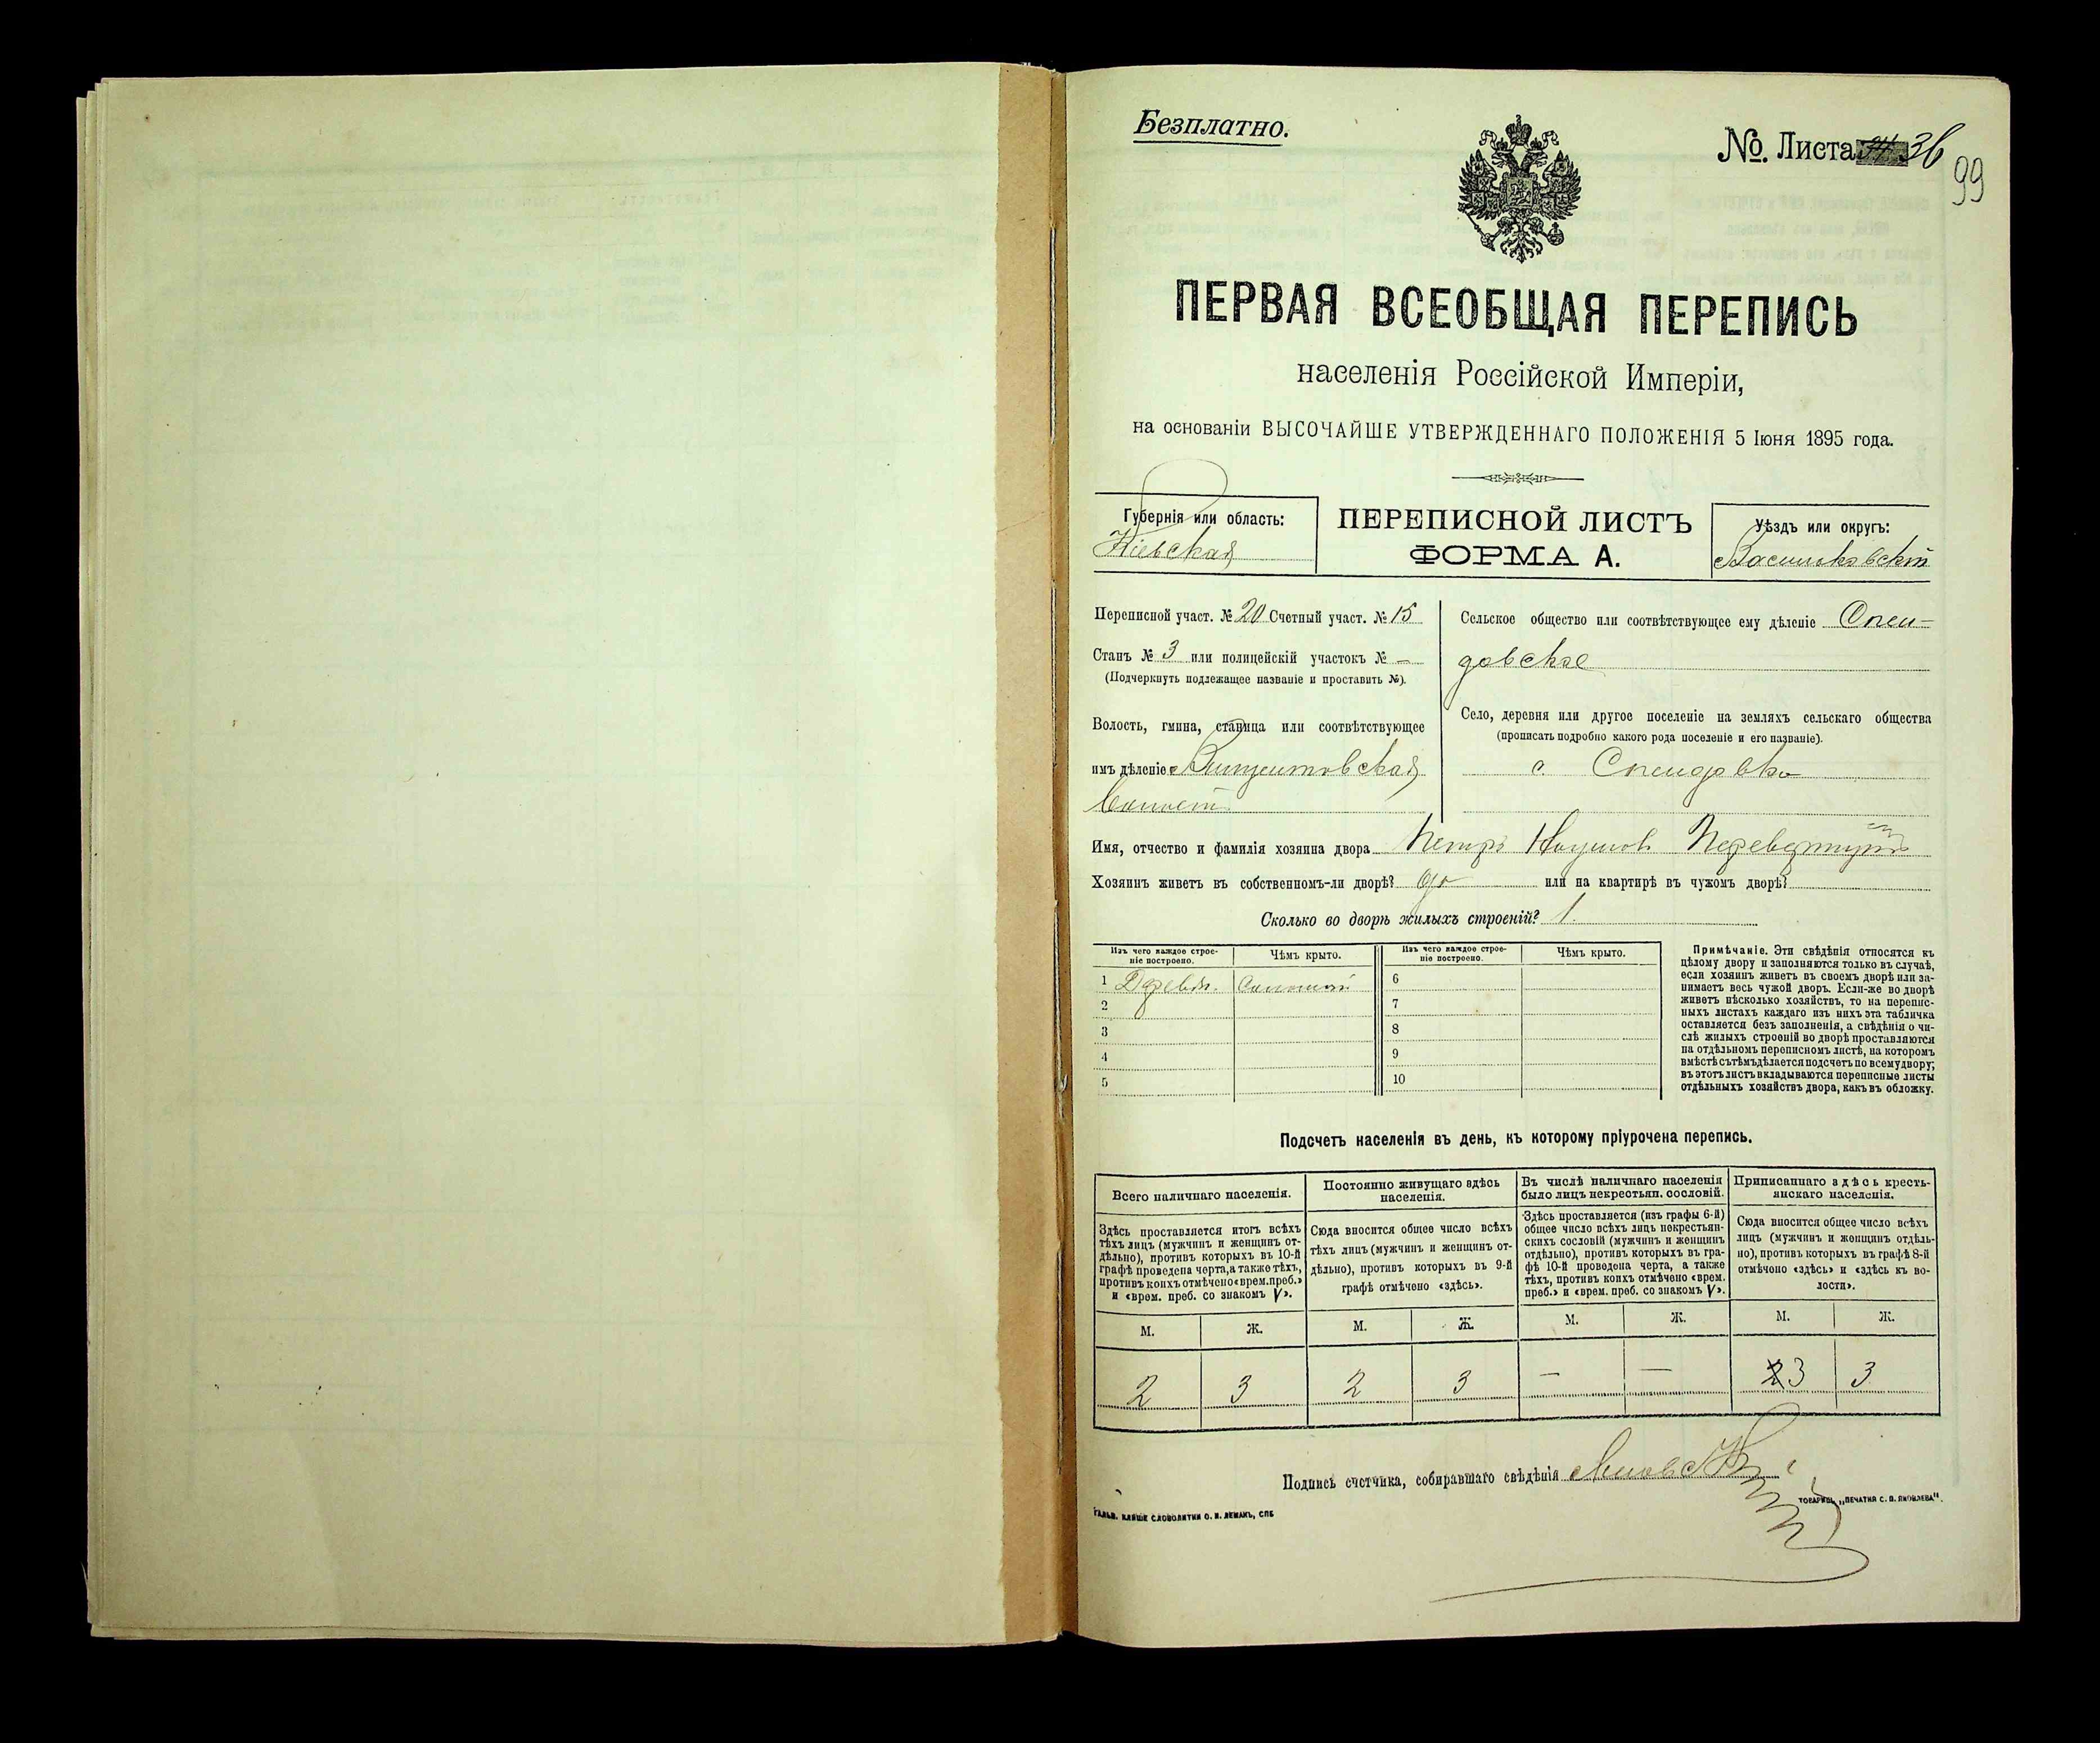 Безплатно.
№. Листа 36
99
ПЕРВАЯ ВСЕОБЩАЯ ПЕРЕПИСЬ
населенія Россійской Имперіи,
на основаніи ВЫСОЧАЙШЕ УТВЕРЖДЕННАГО ПОЛОЖЕНІЯ 5 Іюня 1895 года.
Губернія или область:
Кіевская
ПЕРЕПИСНОЙ ЛИСТЪ
ФОРМА А.
Уѣздъ или округъ:
Васильковскій
Переписной участ. № 20 Счетный участ. № 15
Станъ № 3 или полицейскій участокъ № –
(Подчеркнуть подлежащее названіе и проставить №).
Волость, гмина, станица или соотвѣтствующее
имъ дѣленіе Винцентовская
Сельское общество или соотвѣтствующее ему дѣленіе Спен-
довское
Село, деревня или другое поселеніе на земляхъ сельскаго общества
(прописать подробно какого рода поселеніе и его названіе).
с. Спендовка
Имя, отчество и фамилія хозяина двора Петръ Наумов
Хозяинъ живетъ въ собственномъ-ли дворѣ? да или на квартирѣ въ чужомъ дворѣ?
Сколько во дворѣ жилыхъ строеній? 1.
Изъ чего каждое строе-
ніе построено.
Чѣмъ крыто.
Изъ чего каждое строе-
ніе построено.
Чѣмъ крыто.
1 Дерев. Соломой
2
3
4
5
6
7
8
9
10
Примѣчаніе. Эти свѣдѣнія относятся къ
цѣлому двору и заполняются только въ случаѣ,
если хозяинъ живетъ въ своемъ дворѣ или за-
нимаетъ весь чужой дворъ. Если-же во дворѣ
живетъ нѣсколько хозяйствъ, то на перепис-
ныхъ листахъ каждаго изъ нихъ эта табличка
оставляется безъ заполненія, а свѣдѣнія о чи-
слѣ жилыхъ строеній во дворѣ проставляются
на отдѣльномъ переписномъ листѣ, на которомъ
вмѣстѣ съ тѣмъ дѣлается подсчетъ по всему двору;
въ этотъ листъ вкладываются переписные листы
отдѣльныхъ хозяйствъ двора, какъ въ обложку.
Подсчетъ населенія въ день, къ которому пріурочена перепись.
Всего наличнаго населенія.
Здѣсь проставляется итогъ всѣхъ
тѣхъ лицъ (мужчинъ и женщинъ от-
дѣльно), противъ которыхъ въ 10-й
графѣ проведена черта, а также тѣхъ,
противъ коихъ отмѣчено «врем. преб.»
и «врем. преб. со знакомъ V».
Постоянно живущаго здѣсь
населенія.
Сюда вносится общее число всѣхъ
тѣхъ лицъ (мужчинъ и женщинъ от-
дѣльно), противъ которыхъ въ 9-й
графѣ отмѣчено «здѣсь».
Въ числѣ наличнаго населенія
было лицъ некрестьян. сословій.
Здѣсь проставляется (изъ графы 6-й)
общее число всѣхъ лицъ некрестьян-
скихъ сословій (мужчинъ и женщинъ
отдѣльно), противъ которыхъ въ гра-
фѣ 10-й проведена черта, а также
тѣхъ, противъ коихъ отмѣчено «врем.
преб.» и «врем. преб. со знакомъ V».
Приписаннаго здѣсь кресть-
янскаго населенія.
Сюда вносится общее число всѣхъ
лицъ (мужчинъ и женщинъ отдѣль-
но), противъ которыхъ въ графѣ 8-й
отмѣчено «здѣсь» и «здѣсь къ во-
лости».
М. Ж. М. Ж. М. Ж. М. Ж.
2 3 2 3 – – 2 3 3
Подпись счетчика, собиравшаго свѣдѣнія
ГАЛЬВ. КЛИШЕ СЛОВОЛИТНИ О. И. ЛЕМАНЪ, СПБ
ТОВАРИЩ. „ПЕЧАТНЯ С. П. ЯКОВЛЕВА".